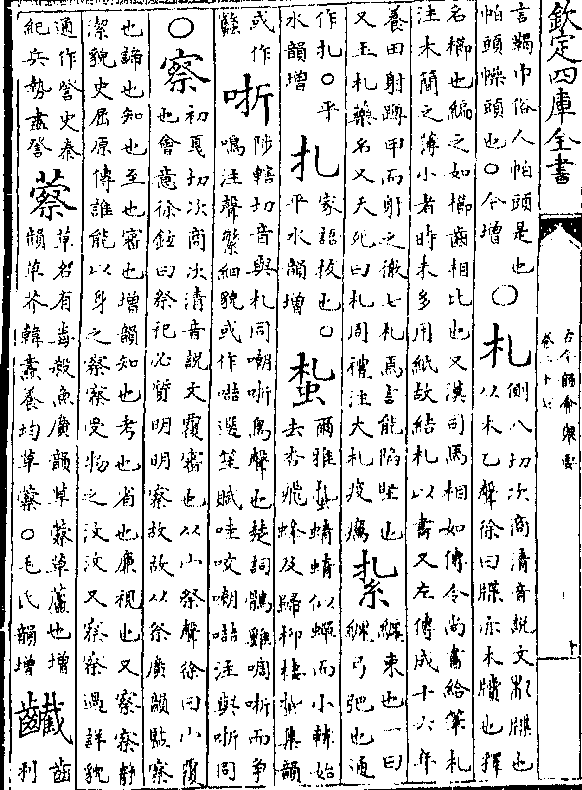 欽定四庫全書
古今韻會舉要
卷二十七
言幧巾俗人帕頭是也
帕頭幧頭也○今增
○札
側八切次商清音說文牒也
从木乙聲徐曰牒亦木牘也釋
名櫛也編之如櫛齒相比也又漢司馬相如傳令尚書給筆札
注木簡之薄小者時未多用紙故給札以書又左傳成十六年
養由射蹲甲而射之徹七札焉言能陷堅也
又玉札藥名又夭死曰札周禮注大札疫癘
紥
纒束也一曰
纒弓弝也通
作扎○平
水韻增
扎
家語拔也○
平水韻增
蚻
爾雅蚻蜻蜻似蟬而小轉始
去杏飛蜂及歸柳棲蚻集韻
或作
哳
陟轄切音與札同嘲哳鳥聲也楚詞鵾雞啁哳而爭
鳴注聲繁細貌或作㗫選笙賦哇咬嘲㗫注與哳同
○察
初戛切次商次清音說文覆審也从宀祭聲徐曰宀覆
也會意徐鉉曰祭祀必質明明察故故从祭廣韻監察
也諦也知也至也審也增韻知也考也省也廉視也又察察靜
潔貌史屈原傳誰能以身之察察受物之汶汶又察察過詳貌
通作詧史秦
紀兵勢盡詧
蔡
草名有毒殺魚廣韻草蔡草蘆也增
韻草芥韓壽養均草蔡○毛氏韻增
齒
利